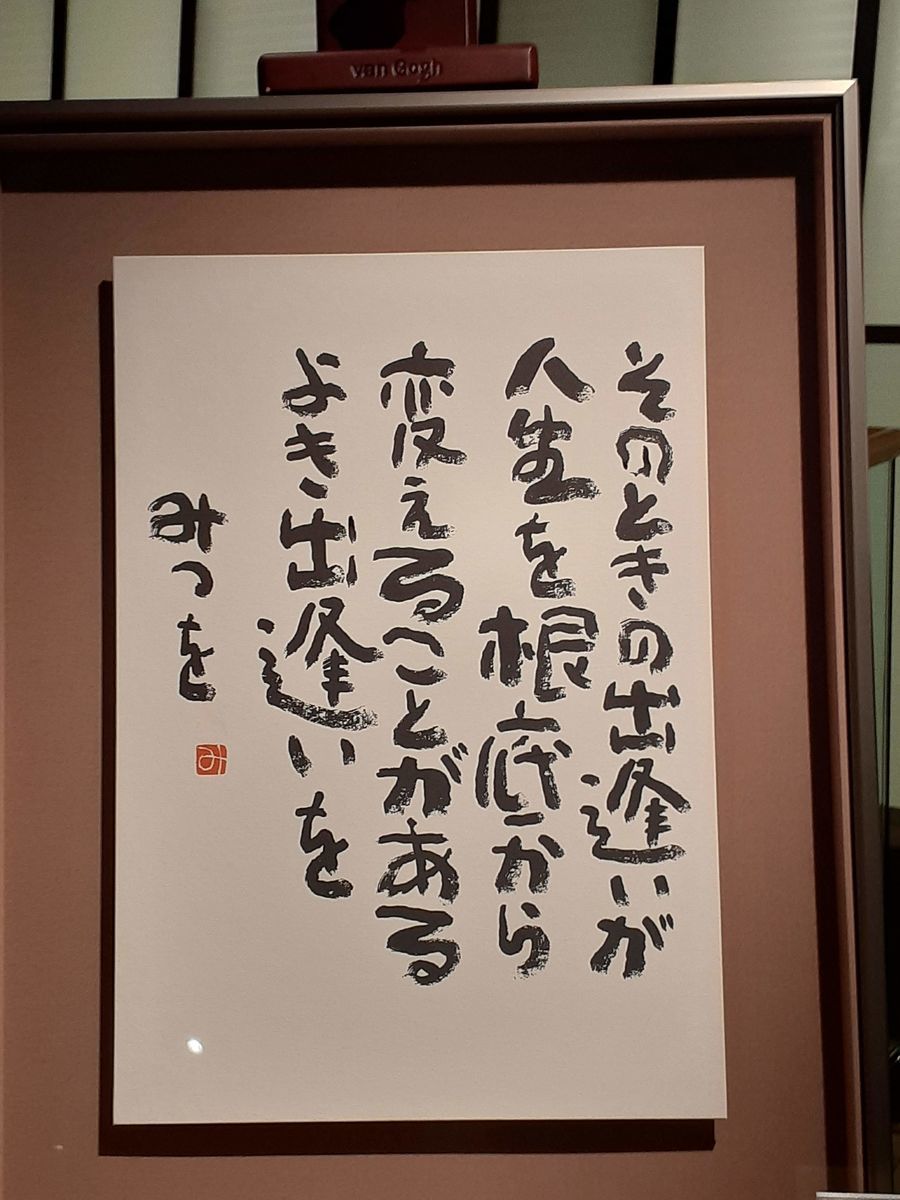 van Gogh
そのときの出逢いが
人生を根底から
変えることがある
よき出逢いを
みつを
み